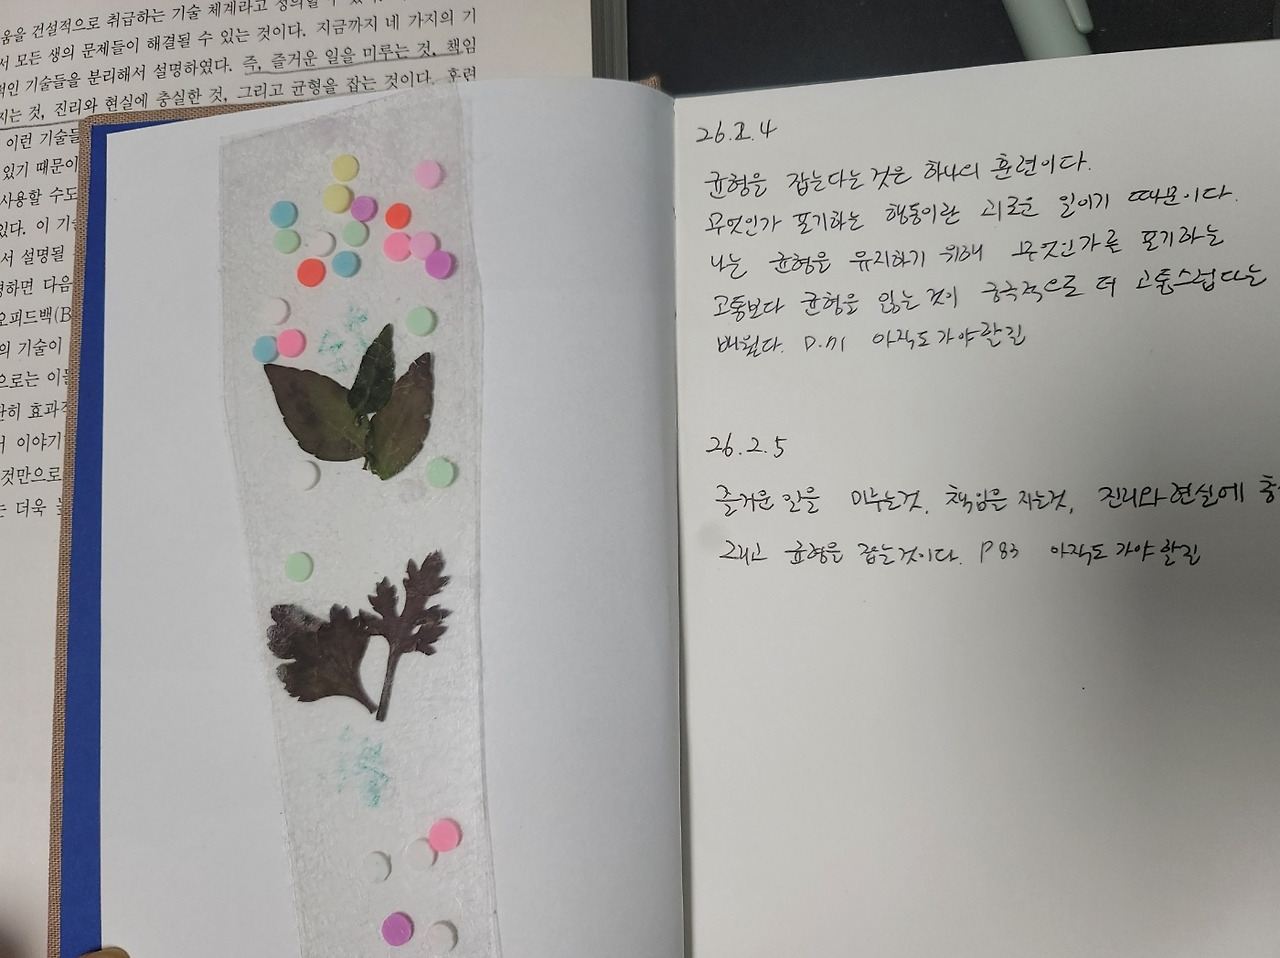 움을 건설적으로 취급하는 기술 체계라고
서 모든 생의 문제들이 해결될 수 있는 것이다. 지금까지 네 가지의 기
적인 기술들을 분리해서 설명하였다. 즉, 즐거운 일을 미루는 것, 책임
지는 것, 진리와 현실에 충실한 것, 그리고 균형을 잡는 것이다. 훈련
이런 기술들
있기 때문이
사용할 수도
있다. 이 기술
서 설명될
명하면 다음
오피드백(B
의 기술이
으로는 이들
단히 효과적
이야기
것만으로
는 더욱
26.2.4
균형을 잡는다는 것은 하나의 훈련이다.
무엇인가 포기하는 행동이란 괴로운 일이기 때문이다.
나는 균형을 유지하기 위해 무엇인가를 포기하는
고통보다 균형을 잃는 것이 궁극적으로 더 고통스럽다는
배웠다. P.71 아직도 가야할 길
26.2.5
즐거운 일을 미루는 것, 책임을 지는 것, 진리와 현실에 충
그리고 균형을 잡는 것이다. P 83 아직도 가야 할 길